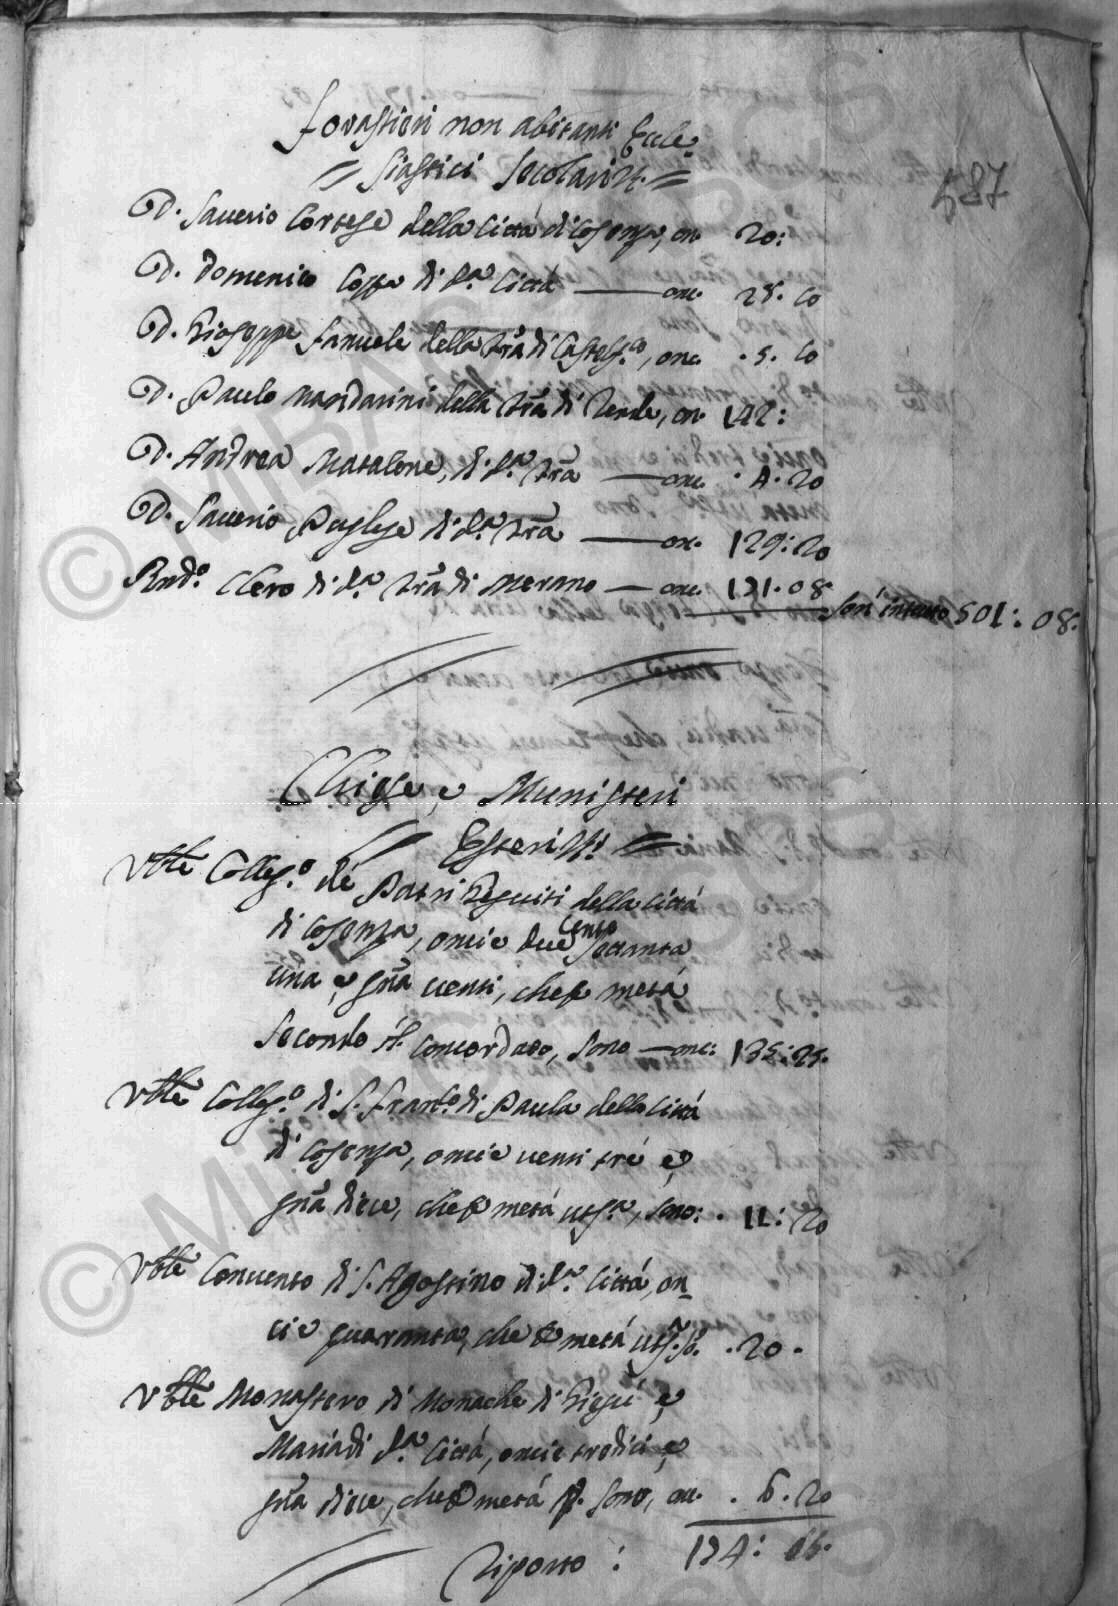 Forastieri non abitanti Eccle=
siastici Secolari
487
D. Saverio Cortese della Città di Cosenza, on. 20:
D. Domenico Coppa di d.ª Città — onc. 25. 10
D. Gioseppe Fanuele della Trã di Castelf.co, onc. . 5. 10
D. Paulo Mandarini della Trã di Rende, on. 142:
D. Andrea Matalone, di d.ª Trã — onc. . 4. 20
D. Saverio Puglese di d.ª Trã — on. 129: 20
Rnd.º Clero di d.ª Trã di Merano — onc. 131. 08
Son' in tutto 501: 08.
Chiese, e Munisteri
Esteri
Vble Colleg.º de Patri Gesuiti della Città
di Cosenza, oncie due cento settanta
una, e grã venti, che p metà
secondo il Concordato, sono — onc: 135: 25.
Vble Colleg.º di S. Fran.co di Paula della Città
di Cosenza, oncie venti tré e
grã diece, che p metà ut s.ª, sono: . 11: 20
Vble Convento di S. Agostino di d.ª Città, on=
cie quaranta, che p metà ut s.ª . 20 .
Vble Monastero di Monache di Giesù e
Maria di d.ª Città, oncie tredici e
grã diece, che p metà p. sono, on. . 6. 20
Riporto : 174: 05.
© MiBAC
© MiBAC